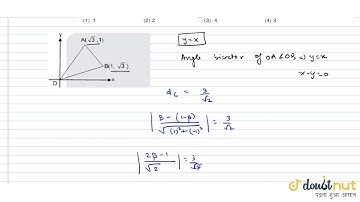 (1) 1 (2) 2 (3) 4 (4) 3
y
A(√3,1)
B(1, √3)
O
x
y=x
Angle bisector of OA & OB ⇒ y=x
x-y=0
d_C = 3/√2
|β-(1-β)/√((1)²+(-1)²)| = 3/√2
|2β-1/√2| = 3/√2
doubtnut
पढ़ना हुआ आसान